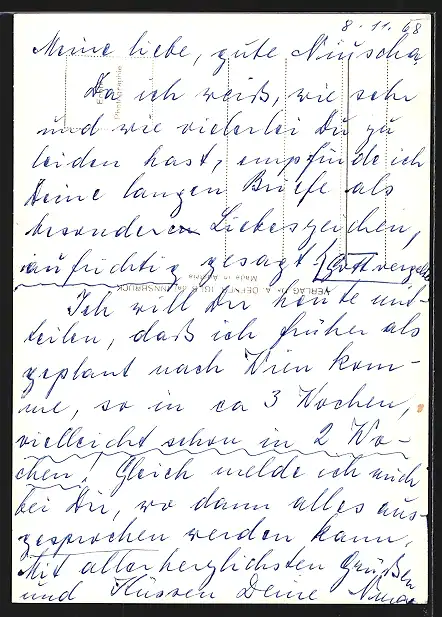 8.11.68
Meine liebe, gute Niuscha,
Da ich weiß, wie sehr
und wie vielerlei Du zu
leiden hast, empfinde ich
Deine langen Briefe als
besonderen Liebeszeichen,
aufrichtig gesagt, Gott vergelts
Ich will Dir heute mit-
teilen, daß ich früher als
geplant nach Wien kom-
me, so in ca 3 Wochen,
vielleicht schon in 2 Wo-
chen! Gleich melde ich mich
bei Dir, wo dann alles aus-
gesprochen werden kann.
Mit allerherzlichsten Grüßen
und Küssen Deine
VERLAG INNSBRUCK
Made in Austria